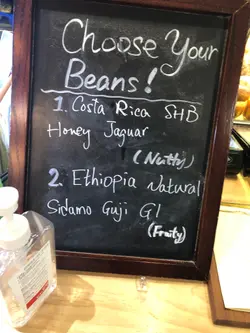 Choose Your
Beans!
1. Costa Rica SHB
Honey Jaguar
(Nutty)
2. Ethiopia Natural
Sidamo Guji G1
(Fruity)